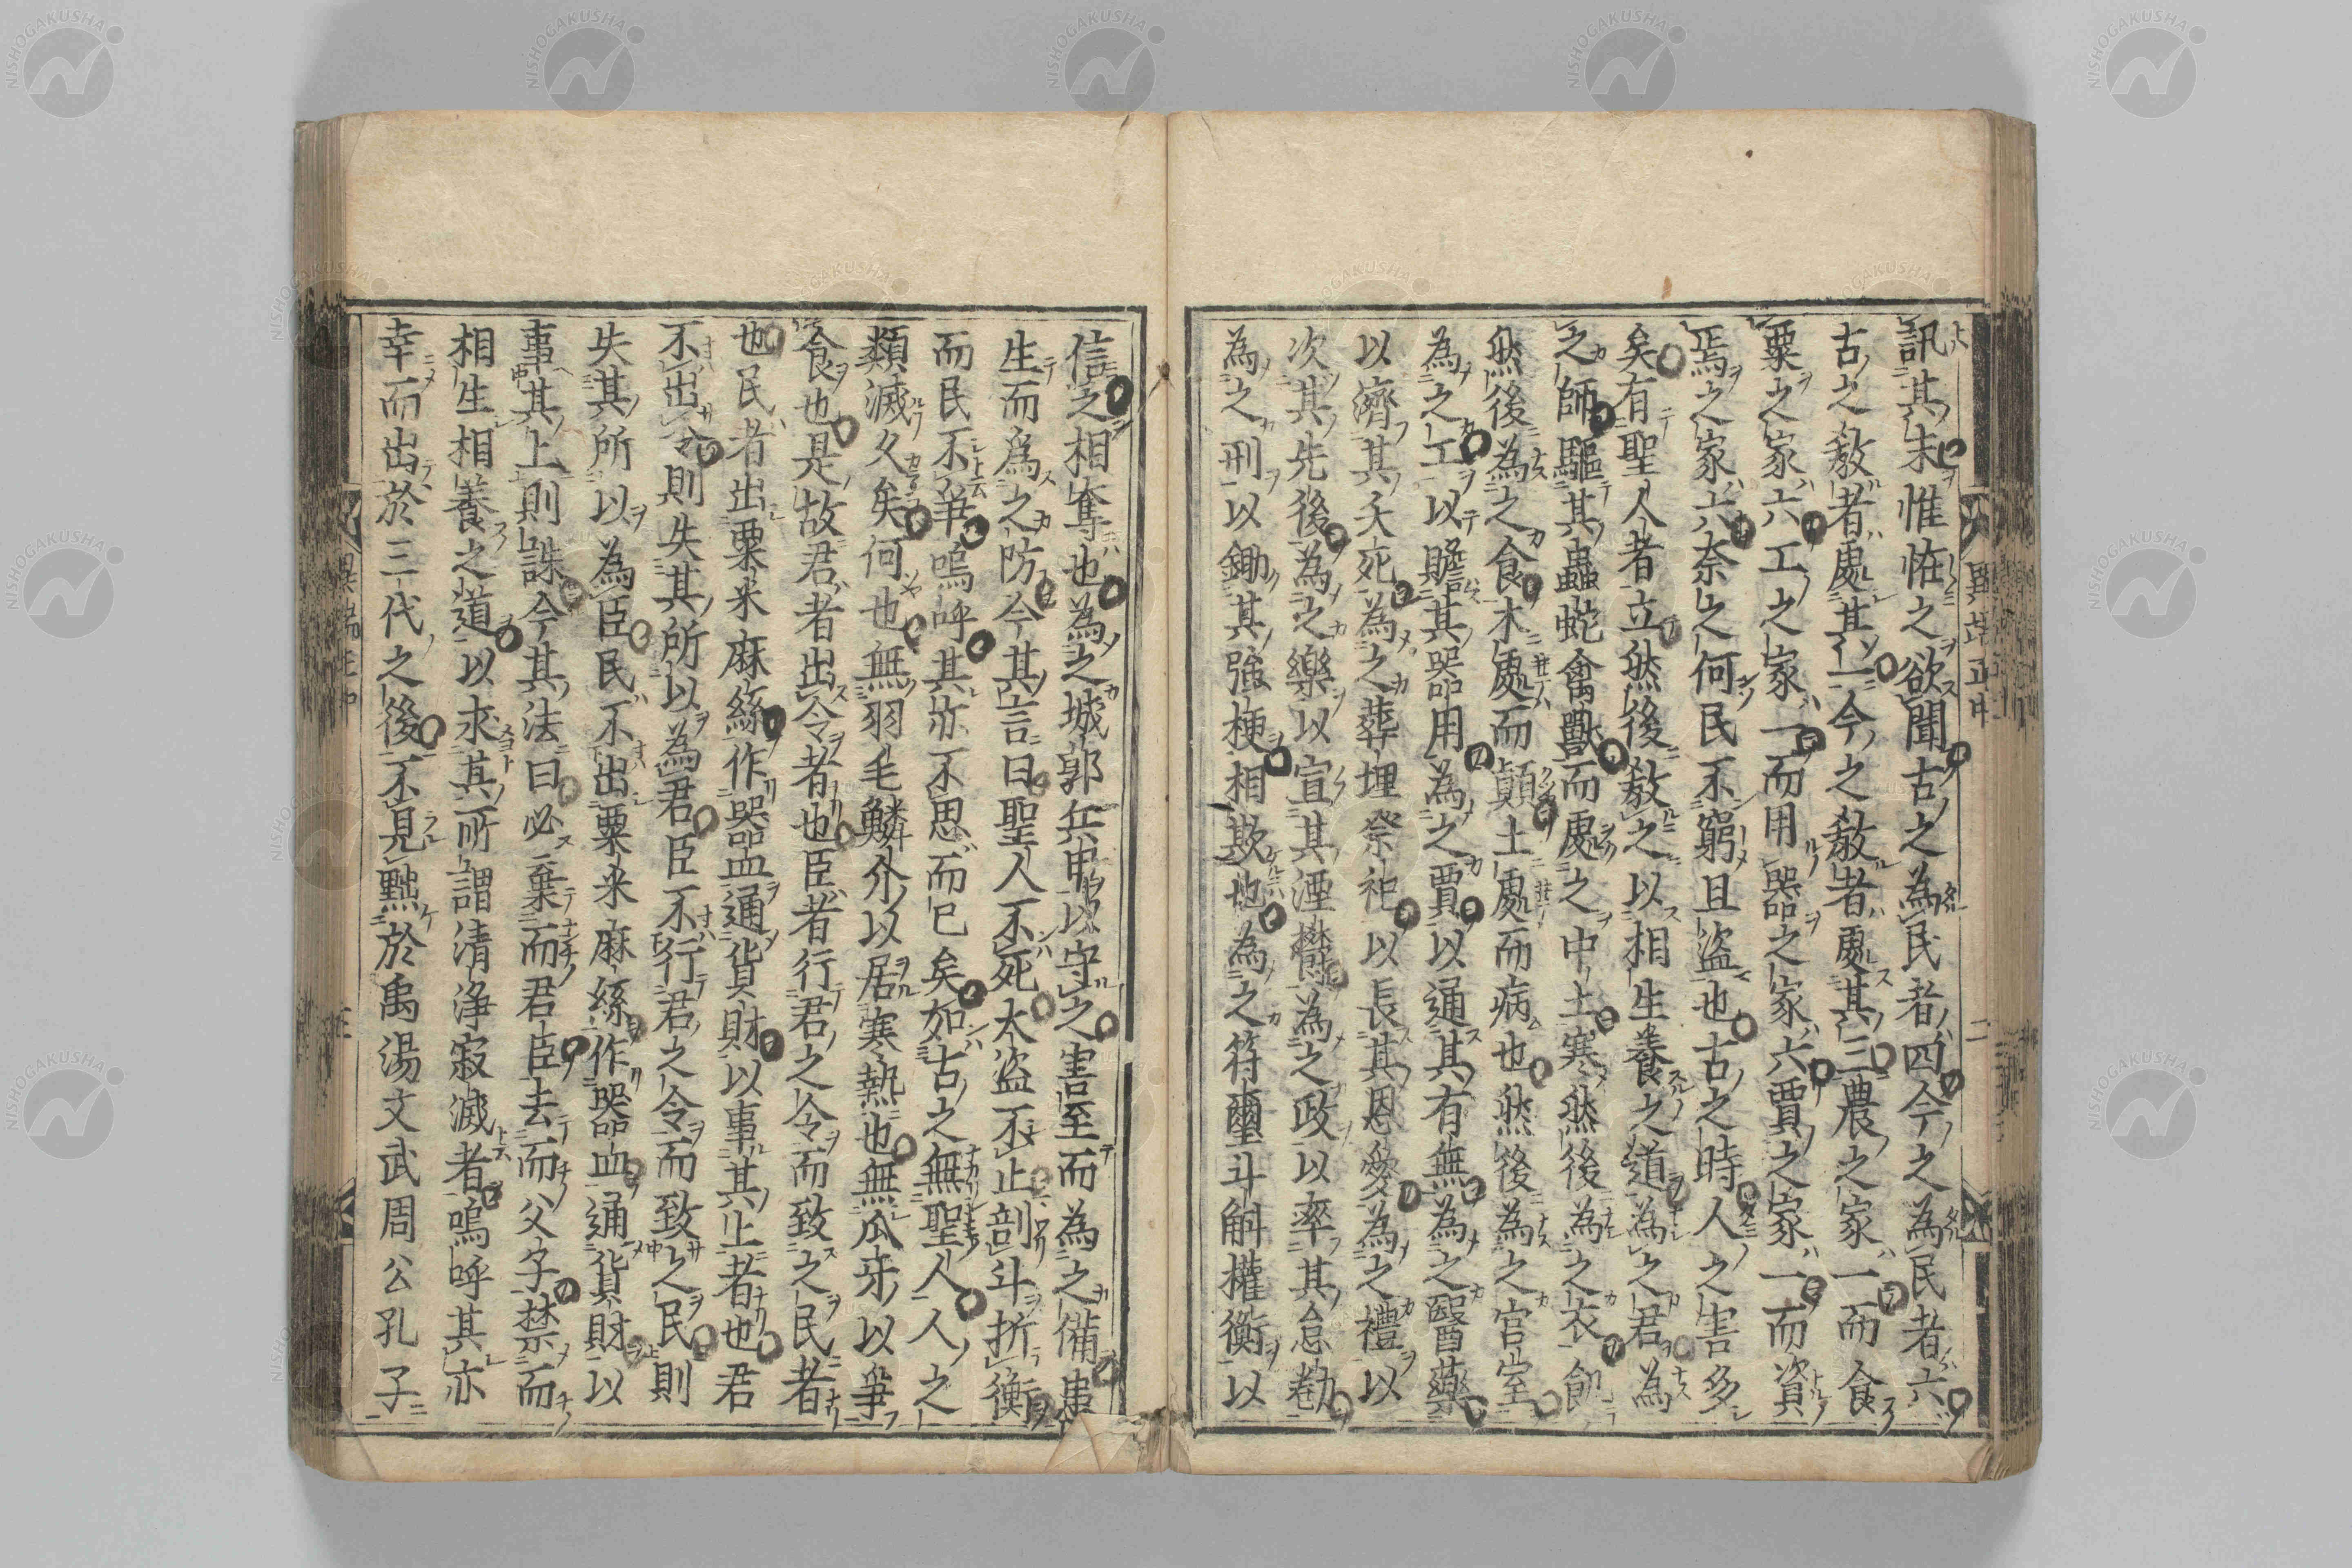 訊其末惟恠之欲聞古之為民者四今之為民者六
古之敎者處其一今之敎者處其三農之家一而食
粟之家六工之家一而用器之家六賈之家一而資
焉之家六奈之何民不窮且盗也古之時人之害多
矣有聖人者立然後敎之以相生養之道為之君為
之師驅其蟲蛇禽獸而處之中土寒然後為之衣飢
然後為之食木處而顚土處而病也然後為之宮室
為之工以贍其器用為之賈以通其有無為之醫藥
以濟其夭死為之葬埋祭祀以長其恩愛為之禮以
次其先後為之樂以宣其湮欝為之政以率其怠勌
為之刑以鋤其強梗相欺也為之符璽斗斛權衡以
信之相奪也為之城郭兵甲以守之害至而為之備患
生而爲之防今其言曰聖人不死大盗不止剖斗折衡
而民不爭嗚呼其亦不思而已矣如古之無聖人人之
類滅久矣何也無羽毛鱗介以居寒熱也無爪牙以爭
食也是故君者出令者也臣者行君之令而致之民者
也民者出粟米麻絲作器皿通貨財以事其上者也君
不出令則失其所以為君臣不行君之令而致之民則
失其所以為臣民不出粟米麻絲作器皿通貨財以
事其上則誅今其法曰必棄而君臣去而父子禁而
相生相養之道以求其所謂清浄寂滅者嗚呼其亦
幸而出於三代之後不見黜於禹湯文武周公孔子